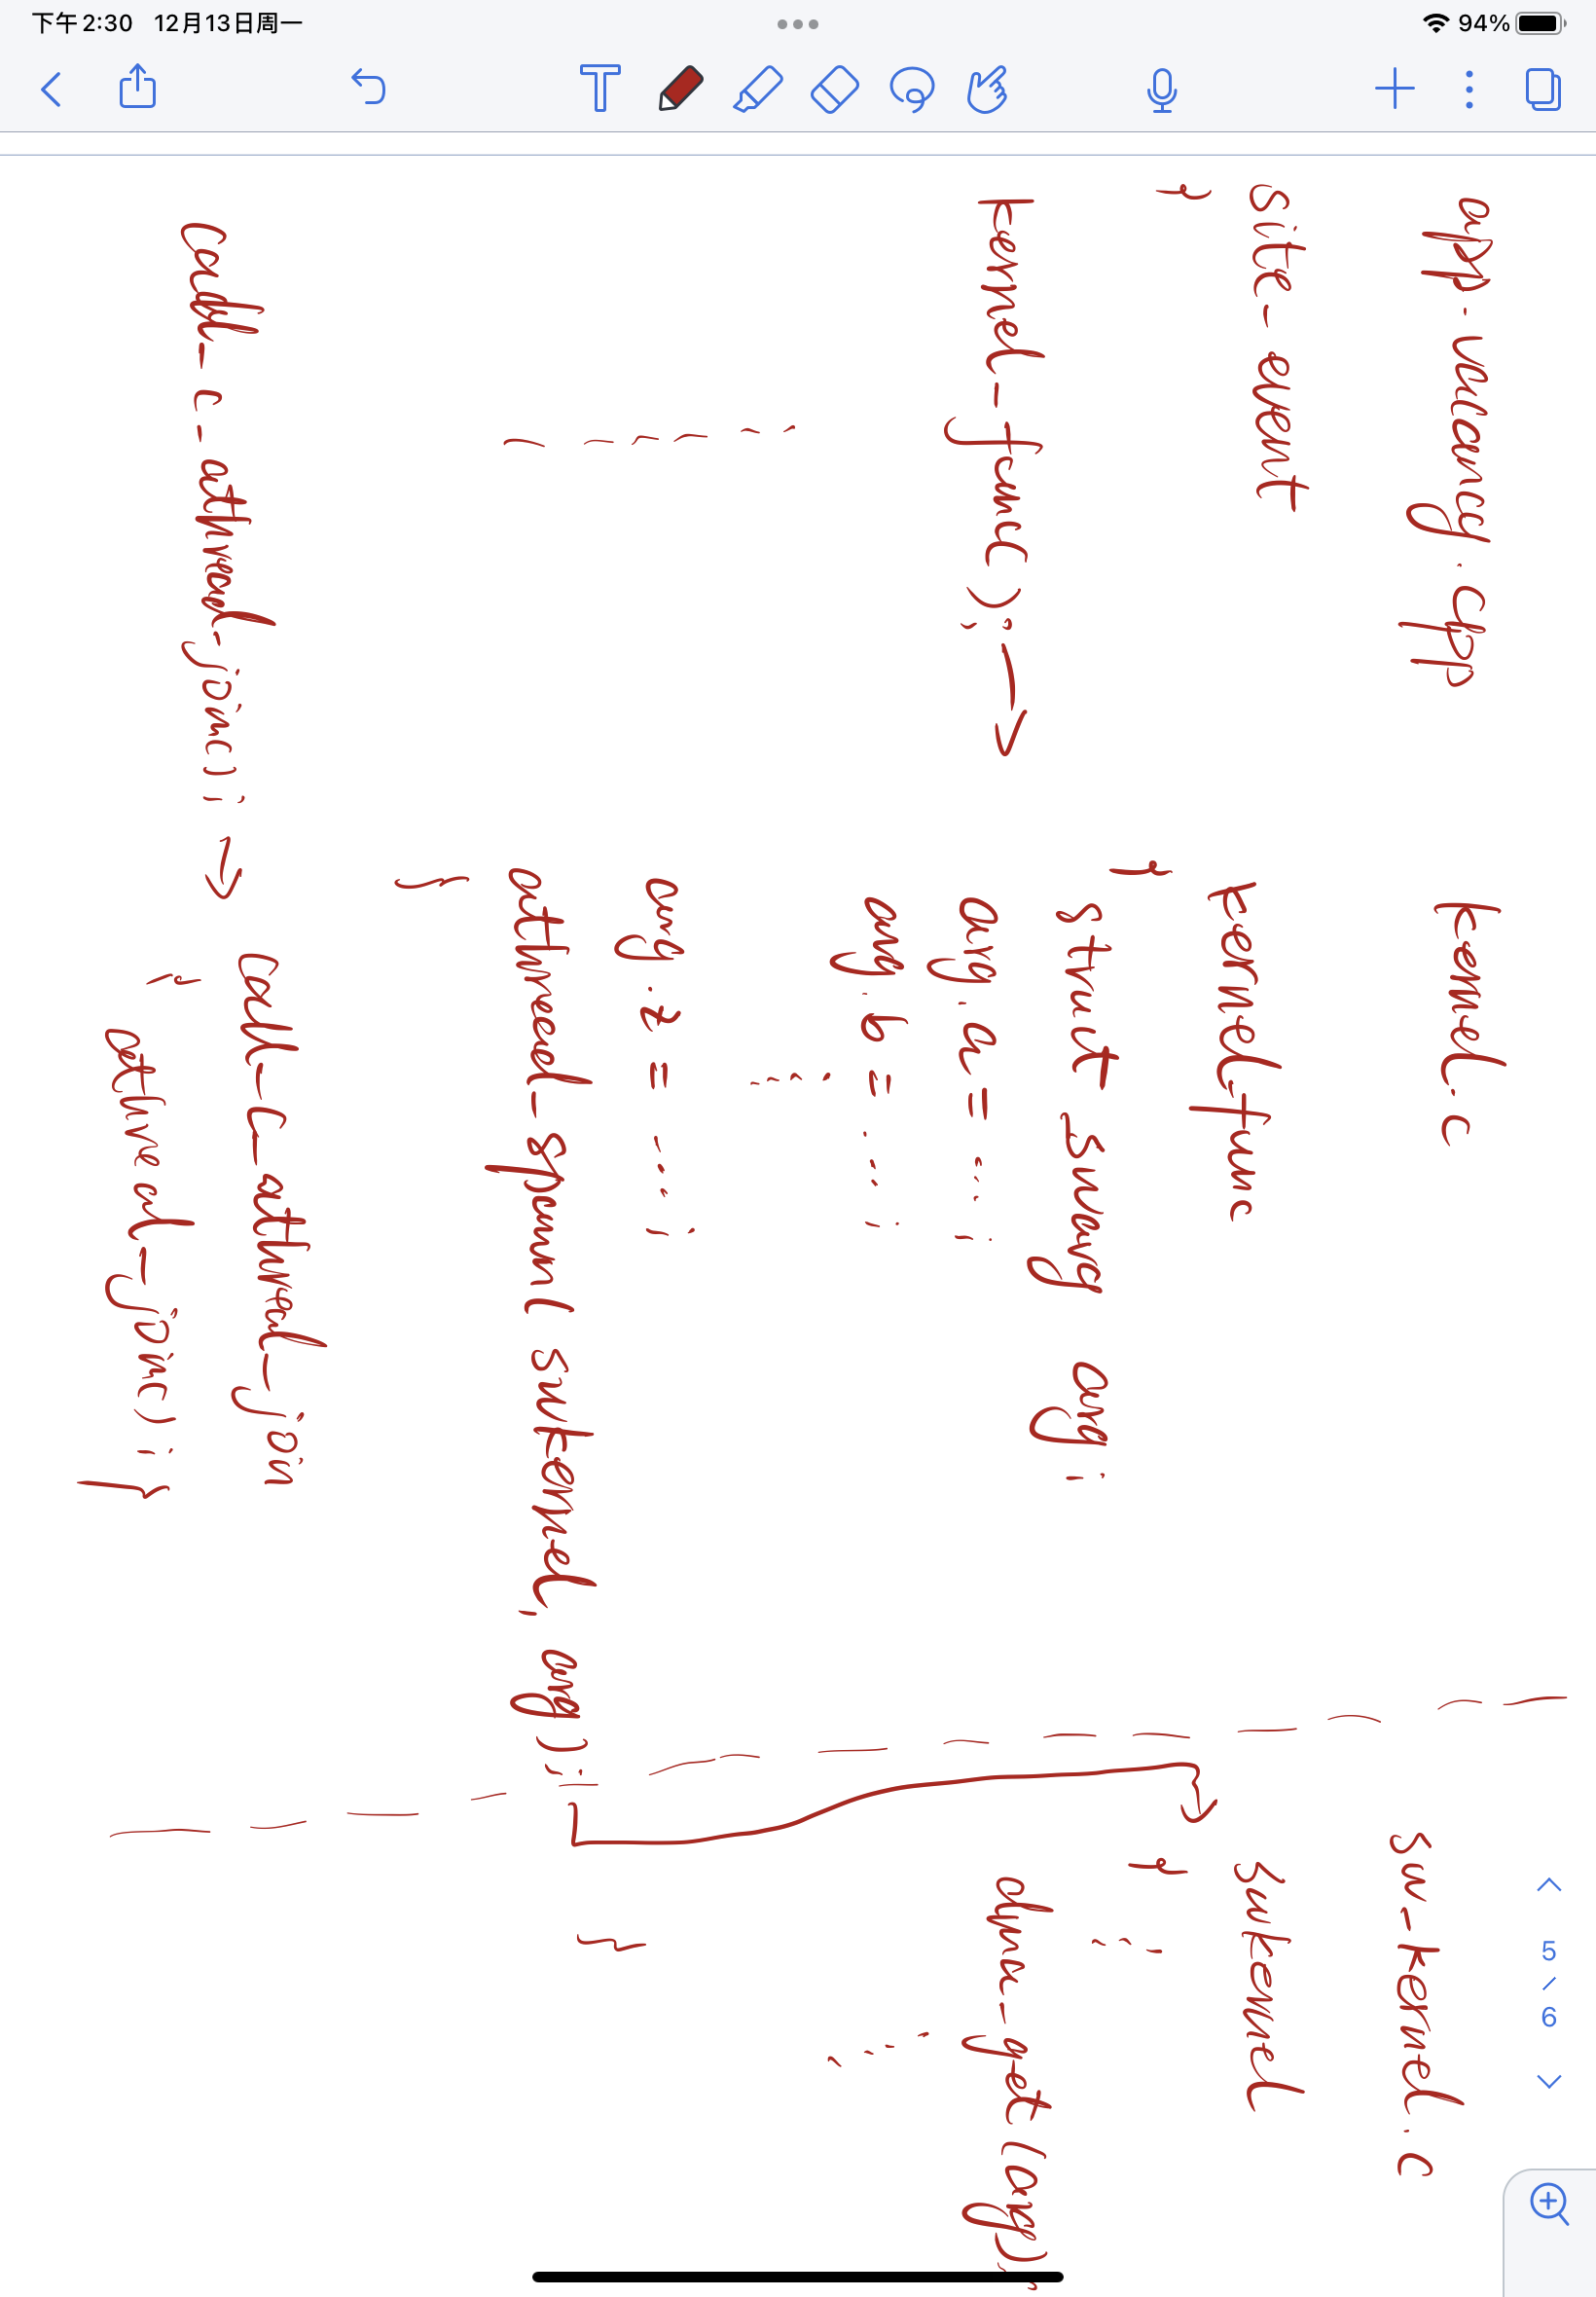 下午2:30 12月13日周一
94%
app.vacancy.cpp
site-event
{
kernel-func();
call-c-athread-join();
kernel.c
kernel-func
{
struct swarg arg;
arg.a = ...;
arg.b = ...;
....
arg.z = ...;
athread-spawn(swkernel, arg);
}
call-c-athread-join
{
athread-join();}
sw-kernel.c
swkernel
{
...
dma-get(arg);
....
}
5
/
6